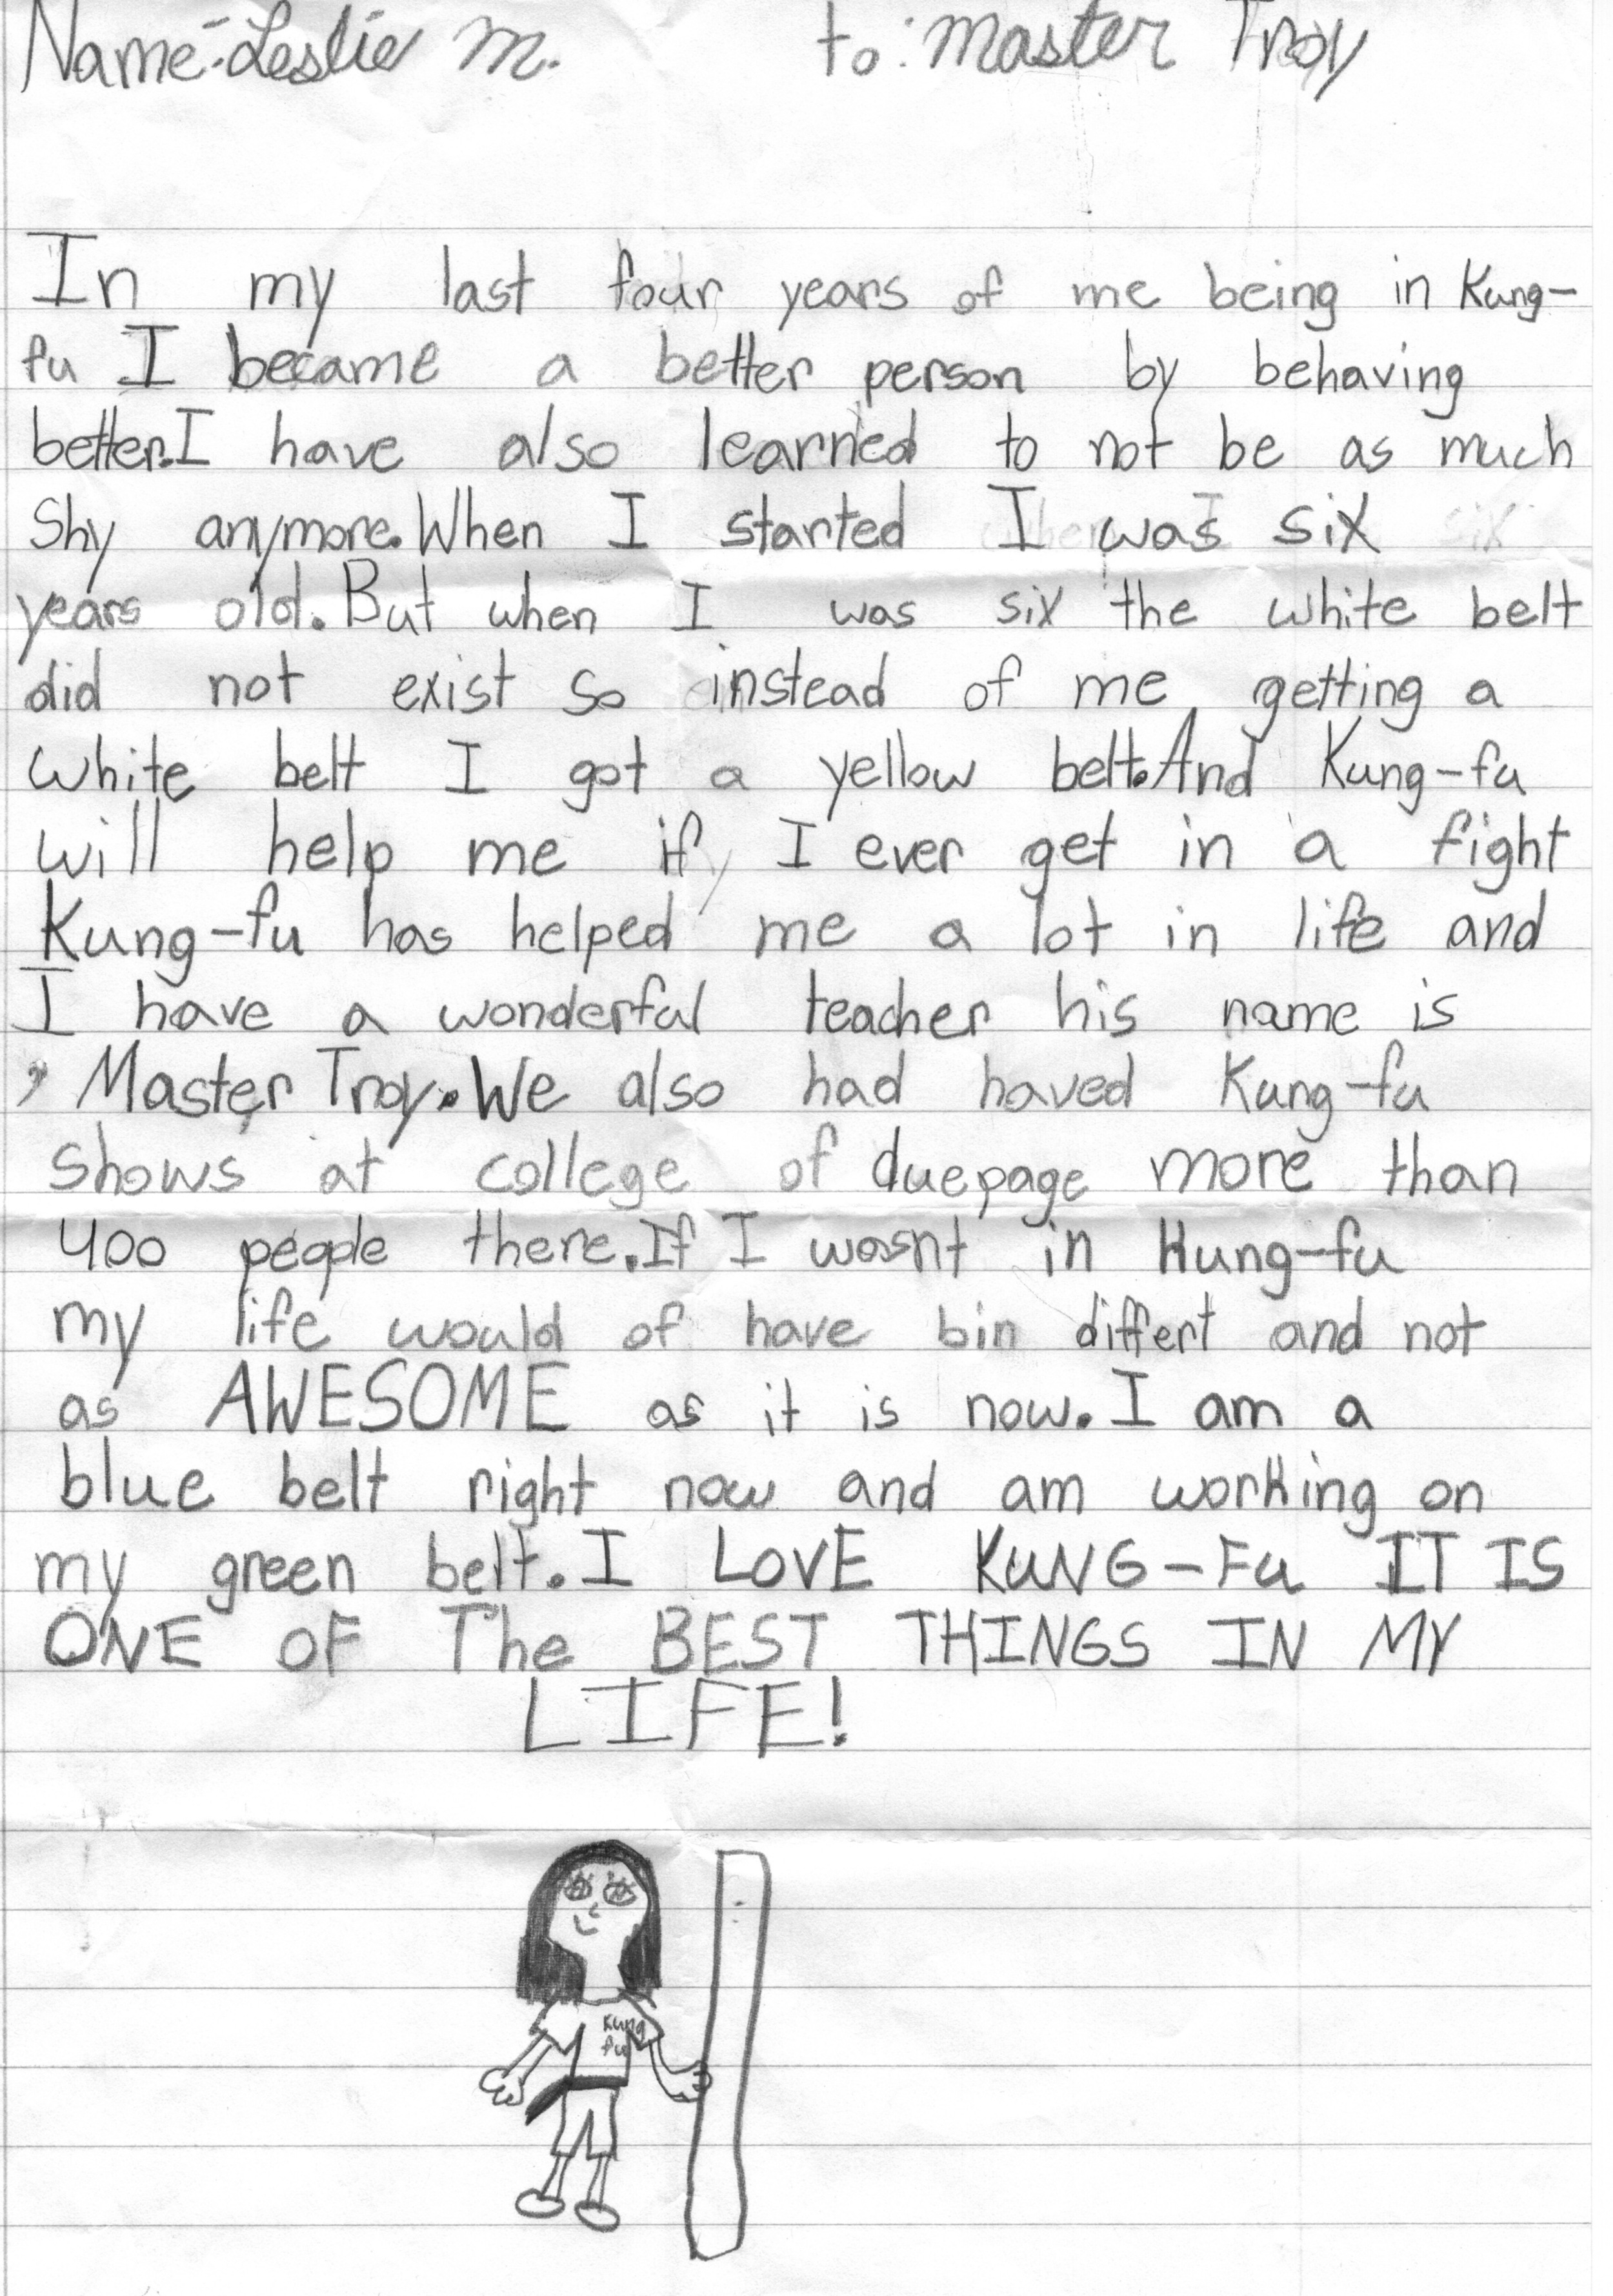 Name: Leslie M. to: Master Troy
In my last four years of me being in Kung-
fu I became a better person by behaving
better.I have also learned to not be as much
Shy anymore.When I started I was six
years old.But when I was six the white belt
did not exist so instead of me getting a
white belt I got a yellow belt.And Kung-fu
will help me if I ever get in a fight
Kung-fu has helped me a lot in life and
I have a wonderful teacher his name is
, Master Troy.We also had haved Kung-fu
shows at college of duepage more than
400 people there.If I wasnt in Kung-fu
my life would of have bin differt and not
as AWESOME as it is now.I am a
blue belt right now and am working on
my green belt.I LOVE KUNG-Fu IT IS
ONE OF The BEST THINGS IN MY
LIFE!
Kung
fu